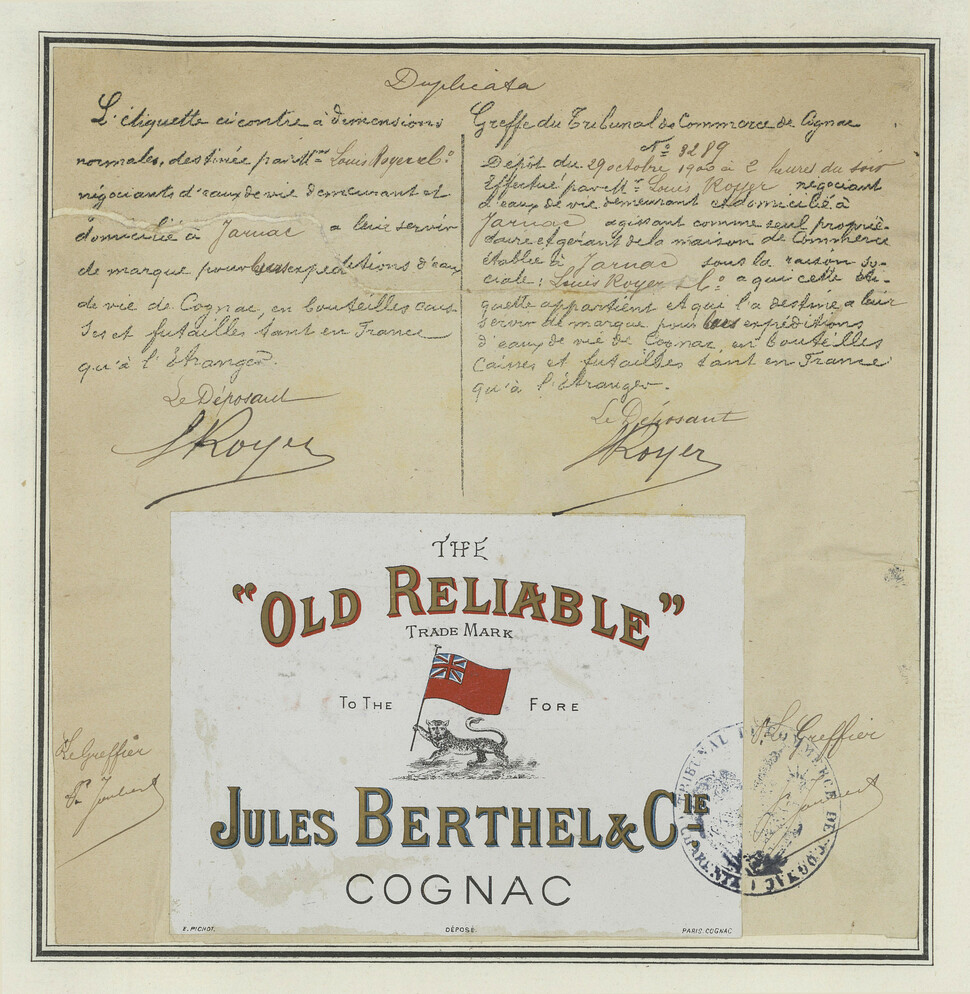 Duplicata
L'étiquette ci contre à dimensions
normales, destinée par Mrs Louis Royer et Co
négociants d'eaux de vie demeurant et
domicilié à Jarnac a leur servir
de marque pour leurs expéditions d'eaux
de vie de Cognac, en bouteilles cais-
ses et futailles tant en France
qu'à l'Etranger.
Le Déposant
LRoyer
Greffe du Tribunal de Commerce de Cognac
No 3289
Dépôt du 29 octobre 1900 à 2 heures du soir
Effectué par Mr Louis Royer négociant
d'eaux de vie demeurant et domicilié à
Jarnac agissant comme seul proprié-
taire et gérant de la maison de Commerce
établie à Jarnac sous la raison so-
ciale: Louis Royer & Co a qui cette éti-
quette appartient et qui l'a destinée a leur
servir de marque pour leurs expéditions
d'eaux de vie de Cognac en bouteilles
Caisses et futailles tant en France
qu'à l'Etranger.
Le Déposant
LRoyer
THE
"OLD RELIABLE"
TRADE MARK
TO THE FORE
JULES BERTHEL & CIE
COGNAC
E. PICHOT.
DÉPOSÉ
PARIS. COGNAC
Le Greffier
P. Le Greffier
TRIBUNAL DE COMMERCE DE COGNAC